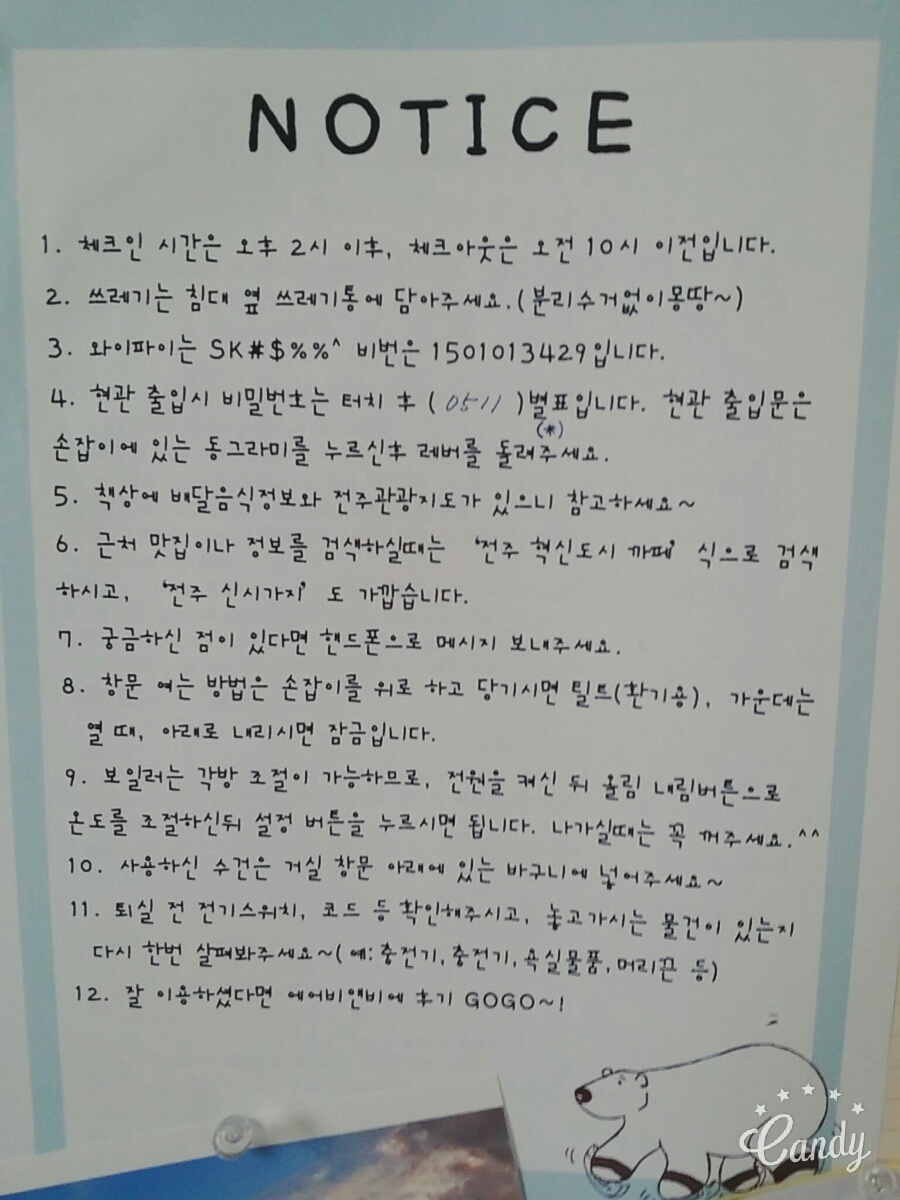 NOTICE
1. 체크인 시간은 오후 2시 이후, 체크아웃은 오전 10시 이전입니다.
2. 쓰레기는 침대 옆 쓰레기통에 담아주세요.(분리수거없이몽땅~)
3. 와이파이는 SK#$%%^ 비번은 1501013429입니다.
4. 현관 출입시 비밀번호는 터치 후 ( 0511 )별표입니다. 현관 출입문은
(*)
손잡이에 있는 동그라미를 누르신후 레버를 돌려주세요.
5. 책상에 배달음식정보와 전주관광지도가 있으니 참고하세요~
6. 근처 맛집이나 정보를 검색하실때는 '전주 혁신도시 까페' 식으로 검색
하시고, '전주 신시가지' 도 가깝습니다.
7. 궁금하신 점이 있다면 핸드폰으로 메시지 보내주세요.
8. 창문 여는 방법은 손잡이를 위로 하고 당기시면 틸트(환기용), 가운데는
열 때, 아래로 내리시면 잠금입니다.
9. 보일러는 각방 조절이 가능하므로, 전원을 켜신 뒤 올림 내림버튼으로
온도를 조절하신뒤 설정 버튼을 누르시면 됩니다. 나가실때는 꼭 꺼주세요.^^
10. 사용하신 수건은 거실 창문 아래에 있는 바구니에 넣어주세요~
11. 퇴실 전 전기스위치, 코드 등 확인해주시고, 놓고가시는 물건이 있는지
다시 한번 살펴봐주세요~(예:충전기,충전기,욕실물품,머리끈 등)
12. 잘 이용하셨다면 에어비앤비에 후기 GOGO~!
Candy